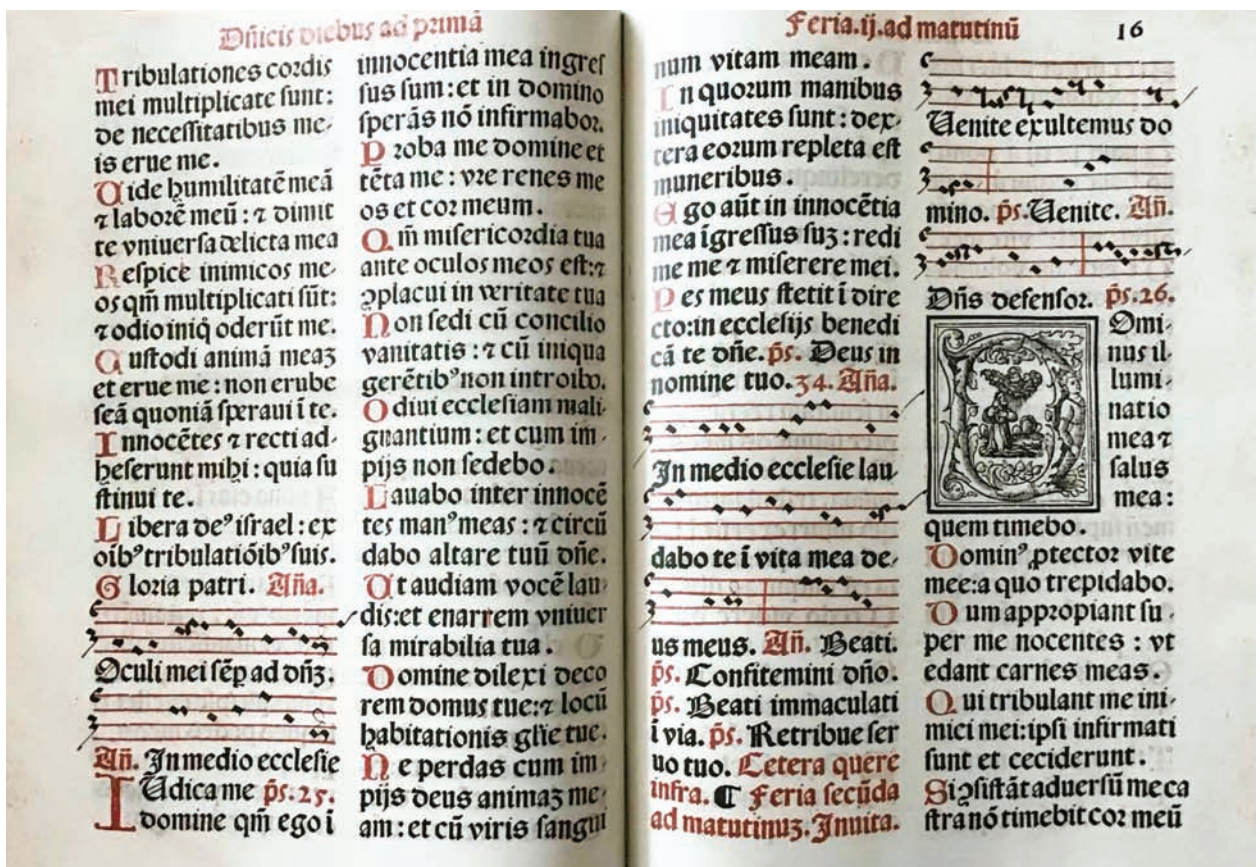 Dñicis diebus ad primã
Tribulationes cordis
mei multiplicate sunt:
de necessitatibus me-
is erue me.
Uide humilitatẽ meã
⁊ laborẽ meũ: ⁊ dimit
te vniuersa delicta mea
Respice inimicos me-
os qm̃ multiplicati sũt:
⁊ odio iniq̃ oderũt me.
Custodi animã meaꝫ
et erue me: non erube
scã quoniã speraui ĩ te.
Innocẽtes ⁊ recti ad-
heserunt mihi: quia su
stinui te.
Libera deꝰ israel: ex
oĩbꝰ tribulatiõibꝰ suis.
Gloria patri. Aña.
Oculi mei sẽp ad dñꝫ.
Añ. In medio ecclesie
IUdica me p̃s. 25.
domine qm̃ ego ĩ
innocentia mea ingres
sus sum: et in domino
sperãs nõ infirmabor.
Proba me domine et
tẽta me: vre renes me
os et cor meum.
Qm̃ misericordia tua
ante oculos meos est: ⁊
ꝯplacui in veritate tua
Non sedi cũ concilio
vanitatis: ⁊ cũ iniqua
gerẽtibꝰ non introibo.
Odiui ecclesiam mali-
gnantium: et cum im-
pijs non sedebo.
Lauabo inter innocẽ
tes manꝰ meas: ⁊ circũ
dabo altare tuũ dñe.
Ut audiam vocẽ lau-
dis: et enarrem vniuer
sa mirabilia tua.
Domine dilexi deco
rem domus tue: ⁊ locũ
habitationis gl̃ie tue.
Ne perdas cum im-
pijs deus animaꝫ me-
am: et cũ viris sangui
Feria. ij. ad matutinũ
16
num vitam meam.
In quorum manibus
iniquitates sunt: dex-
tera eorum repleta est
muneribus.
Ego aũt in innocẽtia
mea ĩgressus suꝫ: redi
me me ⁊ miserere mei.
Pes meus stetit ĩ dire
cto: in ecclesijs benedi
cã te dñe. p̃s. Deus in
nomine tuo. 34. Aña.
In medio ecclesie lau-
dabo te ĩ vita mea de-
us meus. Añ. Beati.
p̃s. Confitemini dño.
p̃s. Beati immaculati
ĩ via. p̃s. Retribue ser
uo tuo. Cetera quere
infra. ¶ Feria secũda
ad matutinuꝫ. Inuita.
Uenite exultemus do
mino. p̃s. Uenite. Añ.
Dñs defensor. p̃s. 26.
Omi-
nus il-
lumi-
natio
mea ⁊
salus
mea:
quem timebo.
Dominꝰ ꝓtector vite
mee: a quo trepidabo.
Dum appropiant su-
per me nocentes: vt
edant carnes meas.
Qui tribulant me ini-
mici mei: ipsi infirmati
sunt et ceciderunt.
Si ꝯsistãt aduersũ me ca
stra nõ timebit cor meũ